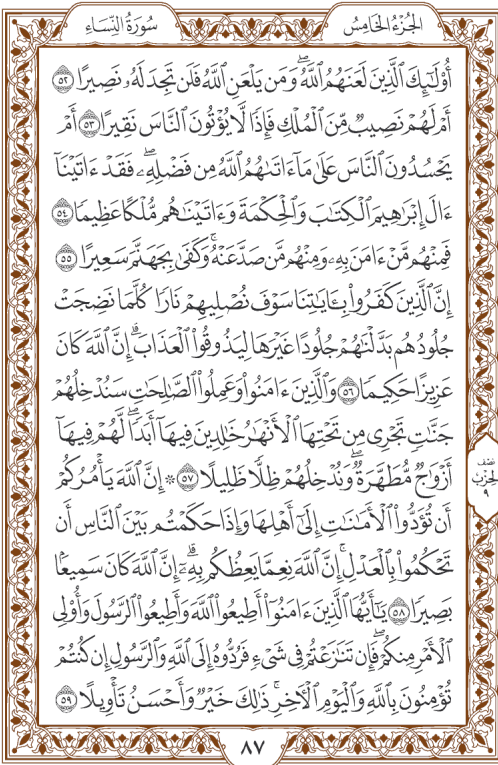 الجُزْءُ الخَامِسُ
سُورَةُ النِّسَاءِ
أُوْلَٰٓئِكَ ٱلَّذِينَ لَعَنَهُمُ ٱللَّهُۖ وَمَن يَلْعَنِ ٱللَّهُ فَلَن تَجِدَ لَهُۥ نَصِيرًا ٥٢
أَمْ لَهُمْ نَصِيبٌ مِّنَ ٱلْمُلْكِ فَإِذًا لَّا يُؤْتُونَ ٱلنَّاسَ نَقِيرًا ٥٣ أَمْ
يَحْسُدُونَ ٱلنَّاسَ عَلَىٰ مَآ ءَاتَىٰهُمُ ٱللَّهُ مِن فَضْلِهِۦۖ فَقَدْ ءَاتَيْنَآ
ءَالَ إِبْرَٰهِيمَ ٱلْكِتَٰبَ وَٱلْحِكْمَةَ وَءَاتَيْنَٰهُم مُّلْكًا عَظِيمًا ٥٤
فَمِنْهُم مَّنْ ءَامَنَ بِهِۦ وَمِنْهُم مَّن صَدَّ عَنْهُۚ وَكَفَىٰ بِجَهَنَّمَ سَعِيرًا ٥٥
إِنَّ ٱلَّذِينَ كَفَرُوا۟ بِـَٔايَٰتِنَا سَوْفَ نُصْلِيهِمْ نَارًا كُلَّمَا نَضِجَتْ
جُلُودُهُم بَدَّلْنَٰهُمْ جُلُودًا غَيْرَهَا لِيَذُوقُوا۟ ٱلْعَذَابَۗ إِنَّ ٱللَّهَ كَانَ
عَزِيزًا حَكِيمًا ٥٦ وَٱلَّذِينَ ءَامَنُوا۟ وَعَمِلُوا۟ ٱلصَّٰلِحَٰتِ سَنُدْخِلُهُمْ
جَنَّٰتٍ تَجْرِى مِن تَحْتِهَا ٱلْأَنْهَٰرُ خَٰلِدِينَ فِيهَآ أَبَدًاۖ لَّهُمْ فِيهَآ
أَزْوَٰجٌ مُّطَهَّرَةٌۖ وَنُدْخِلُهُمْ ظِلًّا ظَلِيلًا ٥٧ ۞ إِنَّ ٱللَّهَ يَأْمُرُكُمْ
أَن تُؤَدُّوا۟ ٱلْأَمَٰنَٰتِ إِلَىٰٓ أَهْلِهَا وَإِذَا حَكَمْتُم بَيْنَ ٱلنَّاسِ أَن
تَحْكُمُوا۟ بِٱلْعَدْلِۚ إِنَّ ٱللَّهَ نِعِمَّا يَعِظُكُم بِهِۦٓۗ إِنَّ ٱللَّهَ كَانَ سَمِيعًۢا
بَصِيرًا ٥٨ يَٰٓأَيُّهَا ٱلَّذِينَ ءَامَنُوٓا۟ أَطِيعُوا۟ ٱللَّهَ وَأَطِيعُوا۟ ٱلرَّسُولَ وَأُو۟لِى
ٱلْأَمْرِ مِنكُمْۖ فَإِن تَنَٰزَعْتُمْ فِى شَىْءٍ فَرُدُّوهُ إِلَى ٱللَّهِ وَٱلرَّسُولِ إِن كُنتُمْ
تُؤْمِنُونَ بِٱللَّهِ وَٱلْيَوْمِ ٱلْءَاخِرِۚ ذَٰلِكَ خَيْرٌ وَأَحْسَنُ تَأْوِيلًا ٥٩
نصف
الحزب
٩
٨٧